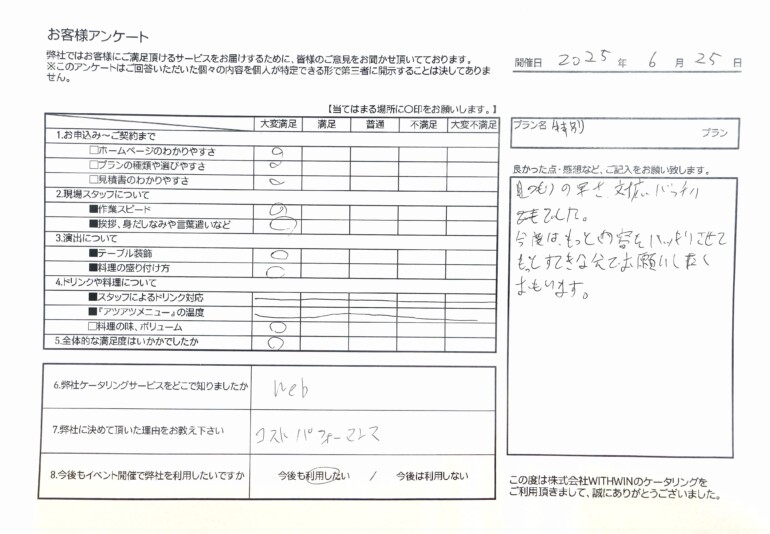 お客様アンケート
弊社ではお客様にご満足頂けるサービスをお届けするために、皆様のご意見をお聞かせ頂いてております。
※このアンケートはご回答いただいた個々の内容を個人が特定できる形で第三者に開示することは決してありま
せん。
開催日 2025 年 6 月 25 日
【当てはまる場所に〇印をお願いします。】
大変満足 満足 普通 不満足 大変不満足
1.お申込み～ご契約まで
□ホームページのわかりやすさ
□プランの種類や選びやすさ
□見積書のわかりやすさ
2.現場スタッフについて
■作業スピード
■挨拶、身だしなみや言葉遣いなど
3.演出について
■テーブル装飾
■料理の盛り付け方
4.ドリンクや料理について
■スタッフによるドリンク対応
■『アツアツメニュー』の温度
□料理の味、ボリューム
5.全体的な満足度はいかがでしたか
6.弊社ケータリングサービスをどこで知りましたか
Web
7.弊社に決めて頂いた理由をお教え下さい
コストパフォーマンス
8.今後もイベント開催で弊社を利用したいですか
今後も利用したい / 今後は利用しない
プラン名 特別 プラン
良かった点・感想など、ご記入をお願い致します。
見つもりの早さ、対応バッチリ
でした。
今度は、もっと内容をハッキリさせて
もっとすてきな会でお願いしたく
おもいます。
この度は株式会社WITHWINのケータリングを
ご利用頂きまして、誠にありがとうございました。